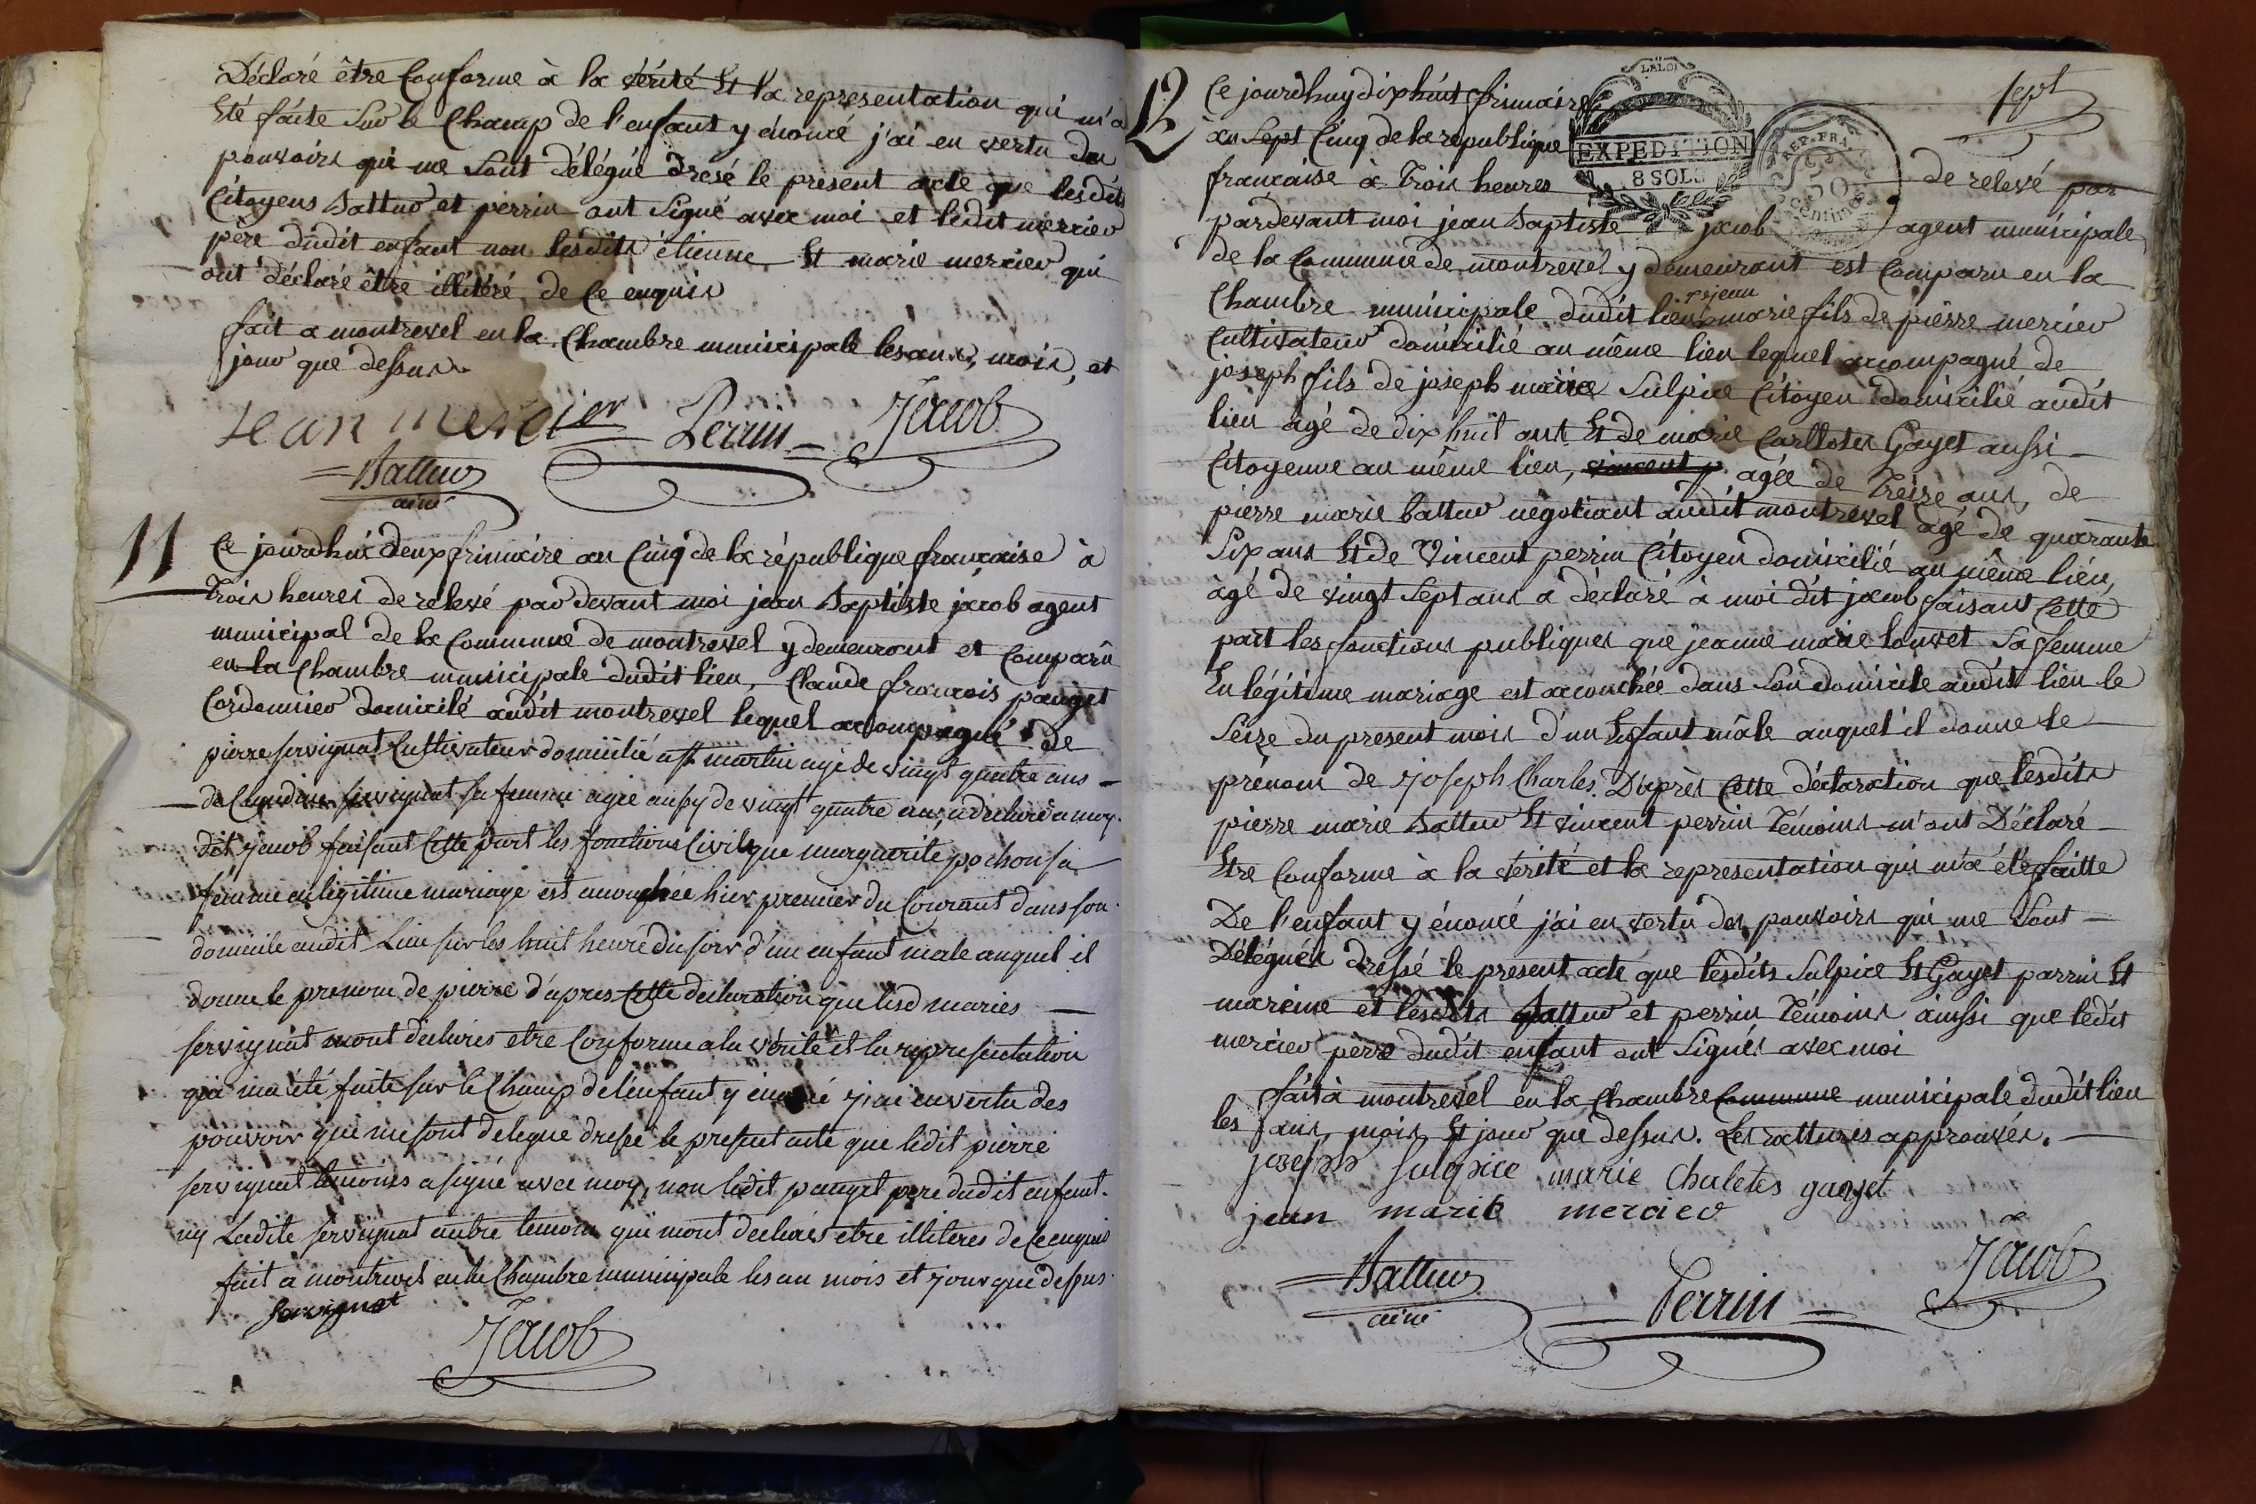 Déclaré être Conforme à la vérité Et la representation qui m'a
Eté faite sur le Champ de l'enfant y énoncé j'ai en vertu des
pouvoirs qui me sont délégué dresé le present acte que lesdits
Citoyens Battur et perrin ont signé avec moi et ledit mercier
père dudit enfant non lesdits étienne Et marie mercier qui
ont déclaré être illitéré de Ce enquis
fait a montrevel en la Chambre municipale les ans, mois, et
jour que dessus
Jean mercier Perrin Jacob
Battur
ainé
11
Ce jourdhui deux frimaire an Cinq de la république française à
Trois heures de relevé par devant moi jean Baptiste jacob agent
municipal de la Commune de montrevel y demeurant et Comparû
en la Chambre municipale dudit lieu, Claude françois pauget
Cordonnier domicilé audit montrevel lequel accompagné de
pierre servignat Cultivateur domicilié a st martin agé de vingt quatre ans
de Claudine servignat sa femme agée aussy de vingt quatre ans a déclaré a moy
dit jacob faisant Cette part les fonctions Civils que marguerite pochon sa
femme en légitime mariage est accouchée hier premier du Courant dans son
domicile audit Lieu sur les huit heure du soir d'un enfant male auquel il
donne le prenom de pierre d'apres Cette declaration que lesd maries
servignat mont déclarés etre Conforme a la vérité et la representation
qui ma été faite sur le Champ de l'enfant y énoncé j'ai en vertu des
pouvoir qui me sont delegué dressé le present acte que ledit pierre
servignat temoins a signé avec moy, non ledit pauget pere dudit enfant
ny Ladite servignat autre temoin qui mont déclarés etre illiteres de Ce enquis
fait a montrevel en la Chambre municipale les an mois et jour que dessus
servignat
Jacob
12
sept
LA LOI
EXPEDITION
8 SOLS
REP. FRA.
50
Centimes
Ce jourdhuy dix huit frimaire
an Sept Cinq de la republique
française à Trois heures de relevé par
pardevant moi jean Baptiste jacob agent municipale
de la Commune de montrevel y demeurant est Comparu en la
jean
Chambre municipale dudit lieu marie fils de pierre mercier
Cultivateur domicilié au même lieu lequel accompagné de
joseph fils de joseph marie Sulpice Citoyen domicilié audit
lieu agé de dix huit ans Et de marie Carllotes Gayet aussi
Citoyenne au même lieu, vincent p agée de Treize ans, de
pierre marie battur négotiant audit montrevel agé de quarante
Six ans Et de Vincent perrin Citoyen domicilié au même lieu,
âgé de vingt Sept ans a déclaré à moi dit jacob faisant Cette
part les fonctions publiques que jeanne marie louvet Sa femme
En légitime mariage est accouchée dans Son domicile audit lieu le
Seize du present mois d'un Enfant mâle auquel il donne le
prénom de joseph Charles. D'après Cette déclaration que lesdits
pierre marie Battur Et vincent perrin Témoins m'ont Déclaré
Etre Conforme à la vérité et la representation qui m'a été faitte
De l'enfant y énoncé j'ai en vertu des pouvoirs qui me Sont
Délégués dressé le present acte que lesdits Sulpice Et Gayet parrin Et
mareine et lesdits Battur et perrin Témoins ainsi que ledit
mercier père dudit enfant ont Signés avec moi
fait à montrevel en la Chambre Commune municipale dudit lieu
les fans, mois, Et jour que dessus. Les rattures approuvés.
joseph sulpice marie Chaletes gayet
jean marie mercier
Battur
ainé
Perrin
Jacob